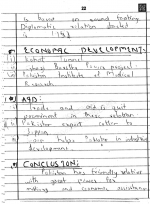 22
is based on sound footing.
Diplomatic relation started
ECONOMIC DEVELOPMENT:
i) Kohat Tunnel
ii) Ghazi Barotha Power project
iii) Pakistan Institute of Medical
Research
AID:
i) Trade and aid is quit
prominent in these relation
ii) Pakistan export cotton to
Japan
iii) helps Pakistan in
development
CONCLUSION:
Pakistan has friendly relation
with great power
making and economic assistance